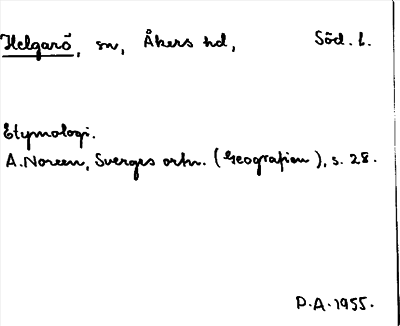 Helgarö, sn, Åkers hd, Söd. l.
Etymologi.
A. Noreen, Sverges ortn. (Geografien), s. 28.
P.A. 1955.